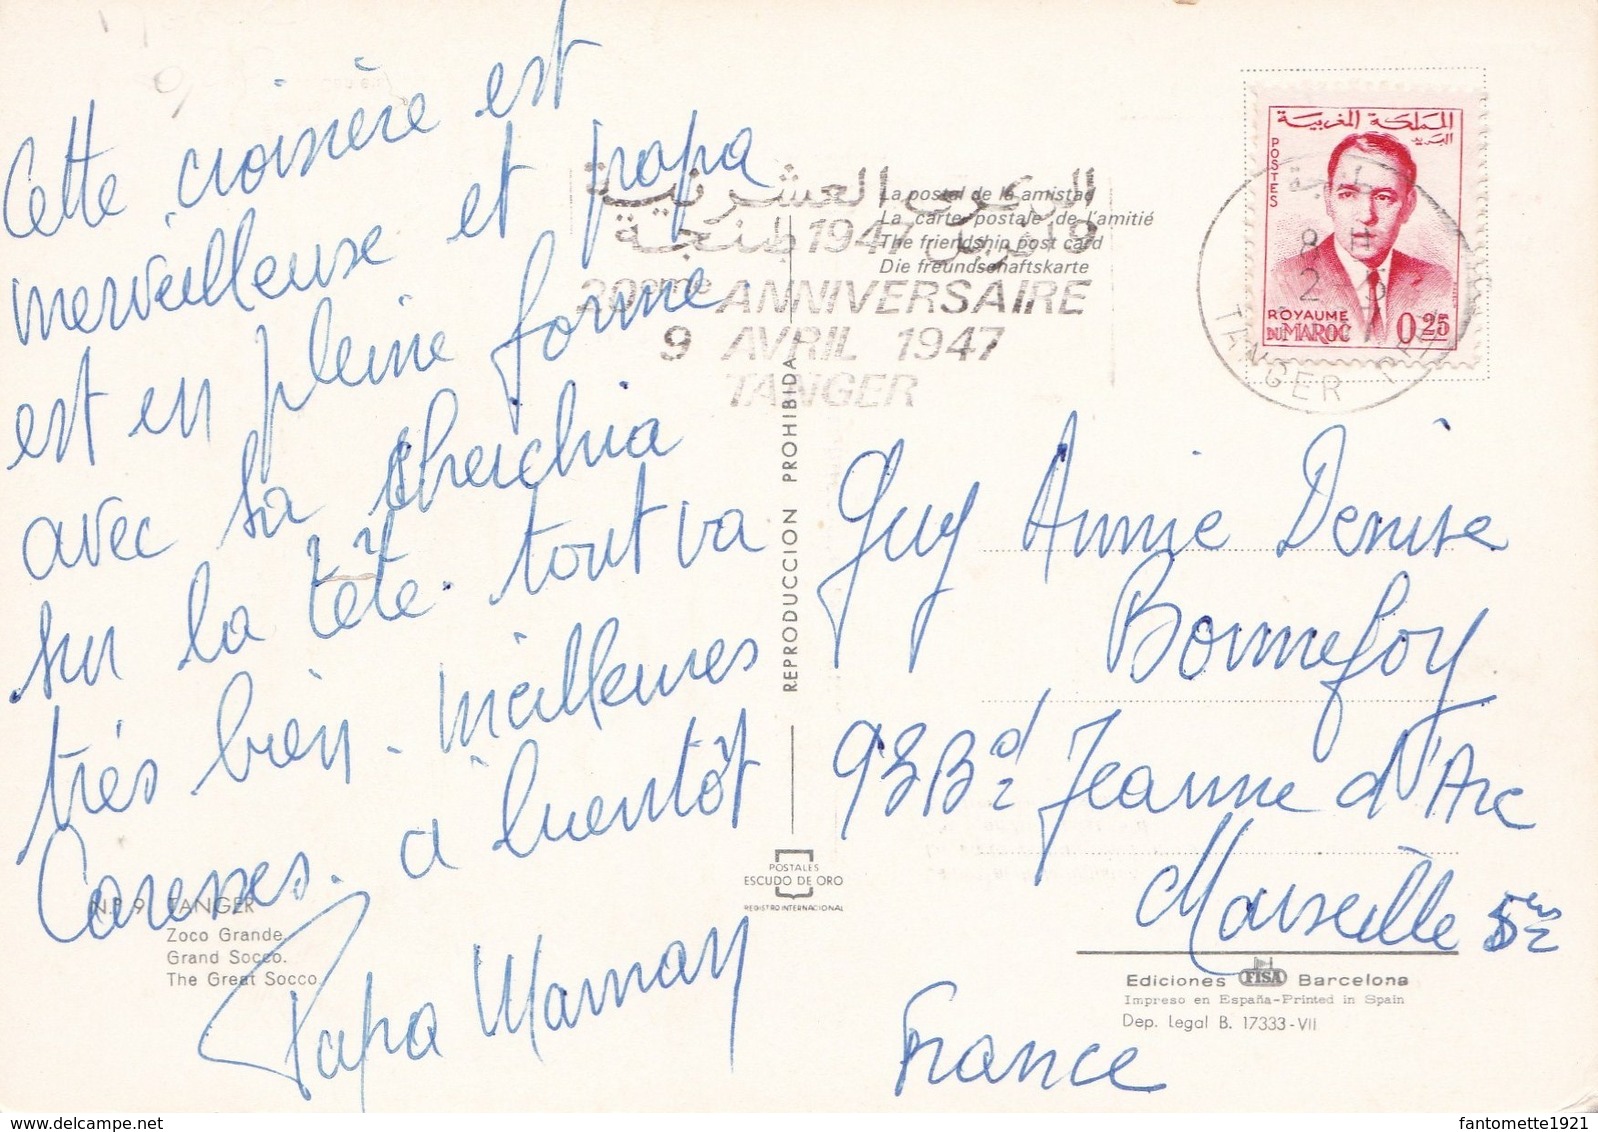 Cette croisière est
merveilleuse et papa
est en pleine forme
avec sa cherchia
sur la tête. tout va
très bien. meilleures
Caresses. à bientôt
Papa Maman
N.P. 9 TANGER
Zoco Grande.
Grand Socco.
The Great Socco.
REPRODUCCION PROHIBIDA
POSTALES
ESCUDO DE ORO
REGISTRO INTERNACIONAL
الذكرى العشرينية
9 1947 طنجة
20ème ANNIVERSAIRE
9 AVRIL 1947
TANGER
La postal de la amistad
La carte postale de l'amitié
The friendship post card
Die freundschaftskarte
المملكة المغربية
البريد
POSTES
ROYAUME
DU MAROC 0.25
طنجة
8 H
TANGER
Guy Annie Denise
Bonnefoy
93 Bd Jeanne d'Arc
Marseille 5
France
Ediciones FISA Barcelona
Impreso en España-Printed in Spain
Dep. Legal B. 17333-VII
fantomette1921